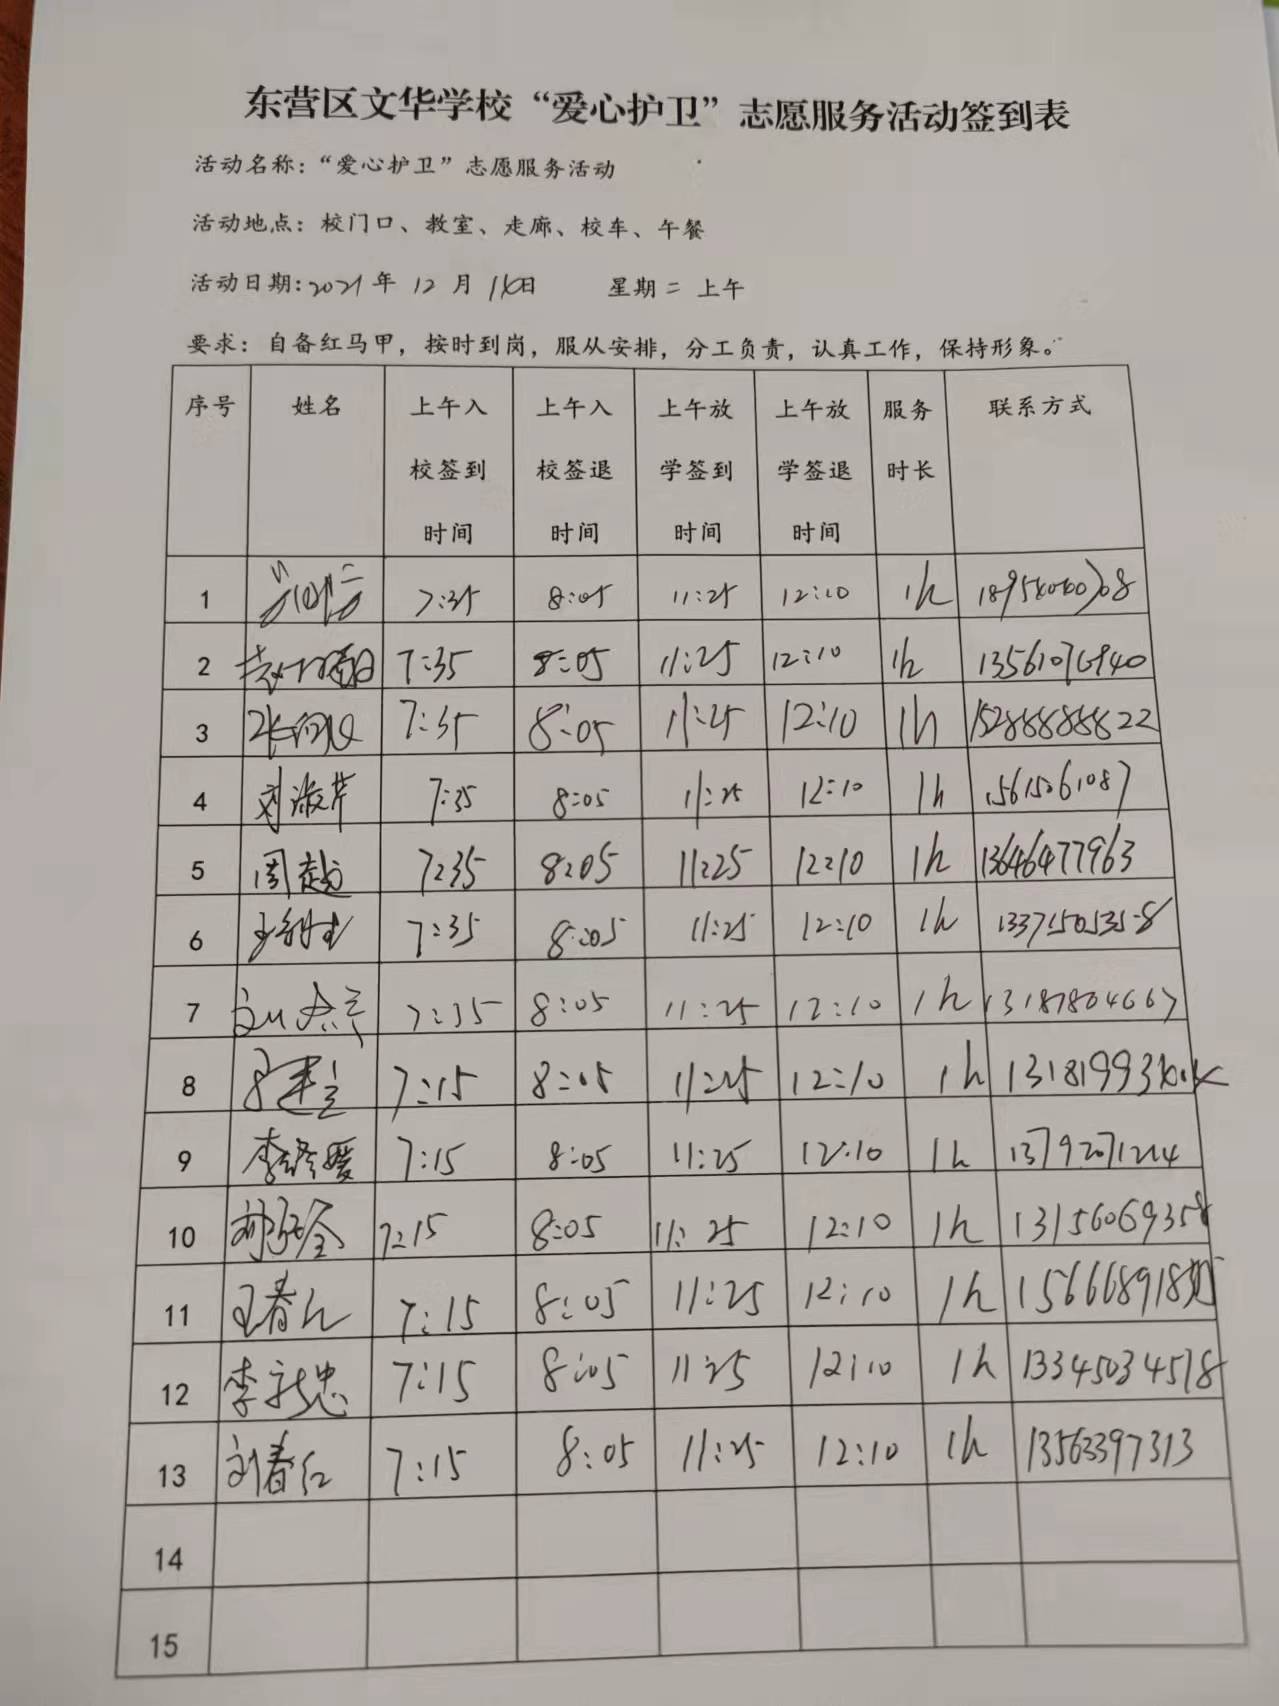 东营区文华学校“爱心护卫”志愿服务活动签到表
活动名称：“爱心护卫”志愿服务活动
活动地点：校门口、教室、走廊、校车、午餐
活动日期：2021年 12月 日 星期二 上午
要求：自备红马甲，按时到岗，服从安排，分工负责，认真工作，保持形象。
序号 姓名 上午入校签到时间 上午入校签退时间 上午放学签到时间 上午放学签退时间 服务时长 联系方式
1 7:35 8:05 11:25 12:10 1h
2 7:35 8:05 11:25 12:10 1h
3 7:35 8:05 11:25 12:10 1h 15288888822
4 刘淑芹 7:35 8:05 11:25 12:10 1h 15615061087
5 周越 7:35 8:05 11:25 12:10 1h 13646477963
6 7:35 8:05 11:25 12:10 1h 13375053558
7 7:35 8:05 11:25 12:10 1h 13187804667
8 7:15 8:05 11:25 12:10 1h
9 7:15 8:05 11:25 12:10 1h 13792071214
10 7:15 8:05 11:25 12:10 1h 13156069358
11 7:15 8:05 11:25 12:10 1h
12 李新忠 7:15 8:05 11:25 12:10 1h 13345034518
13 刘春红 7:15 8:05 11:25 12:10 1h 13563397313
14
15